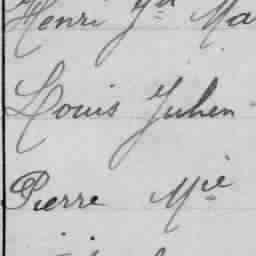 Henri Jh Ma
Louis Julien
Pierre Mie